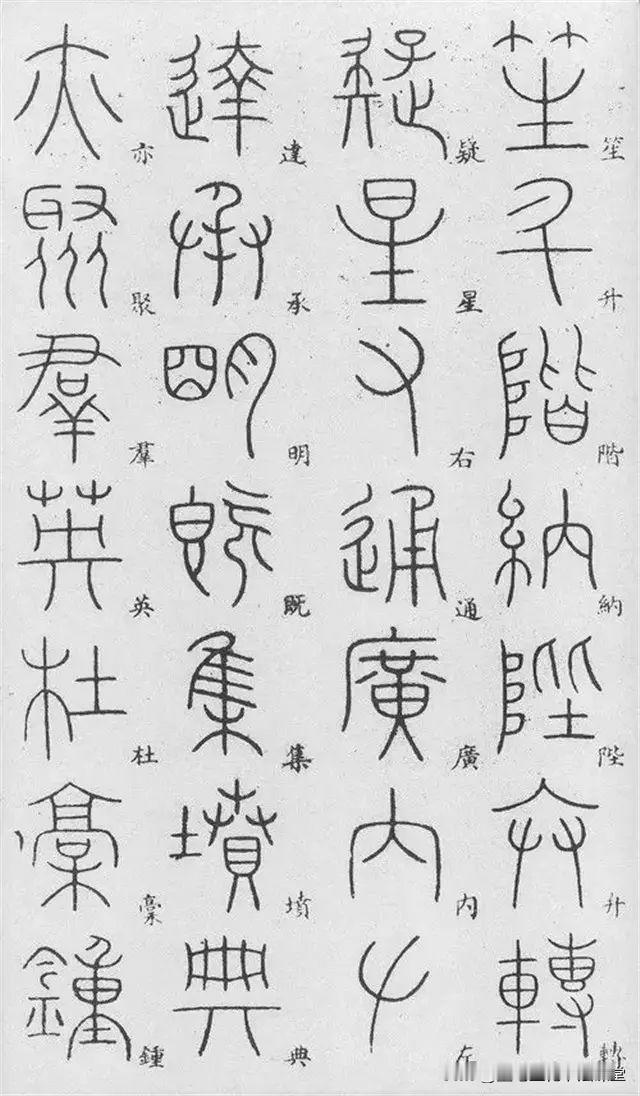 笙升階納陛弁轉
疑星右通廣内左
達承明既集墳典
亦聚羣英杜槀鍾